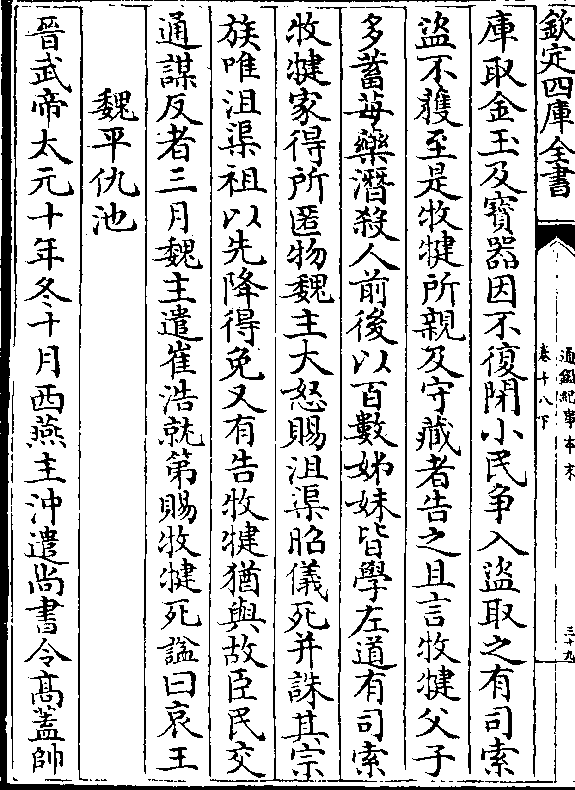 欽定四庫全書
通鑑紀事本末
卷十八下
三十九
庫取金玉及寶器因不復閉小民争入盜取之有司索
盜不獲至是牧犍所親及守藏者告之且言牧犍父子
多蓄毒藥潛殺人前後以百數姊妹皆學左道有司索
牧犍家得所匿物魏主大怒賜沮渠昭儀死并誅其宗
族唯沮渠祖以先降得免又有告牧犍猶與故臣民交
通謀反者三月魏主遣崔浩就第賜牧犍死諡曰哀王
魏平仇池
晉武帝太元十年冬十月西燕主沖遣尚書令髙蓋帥